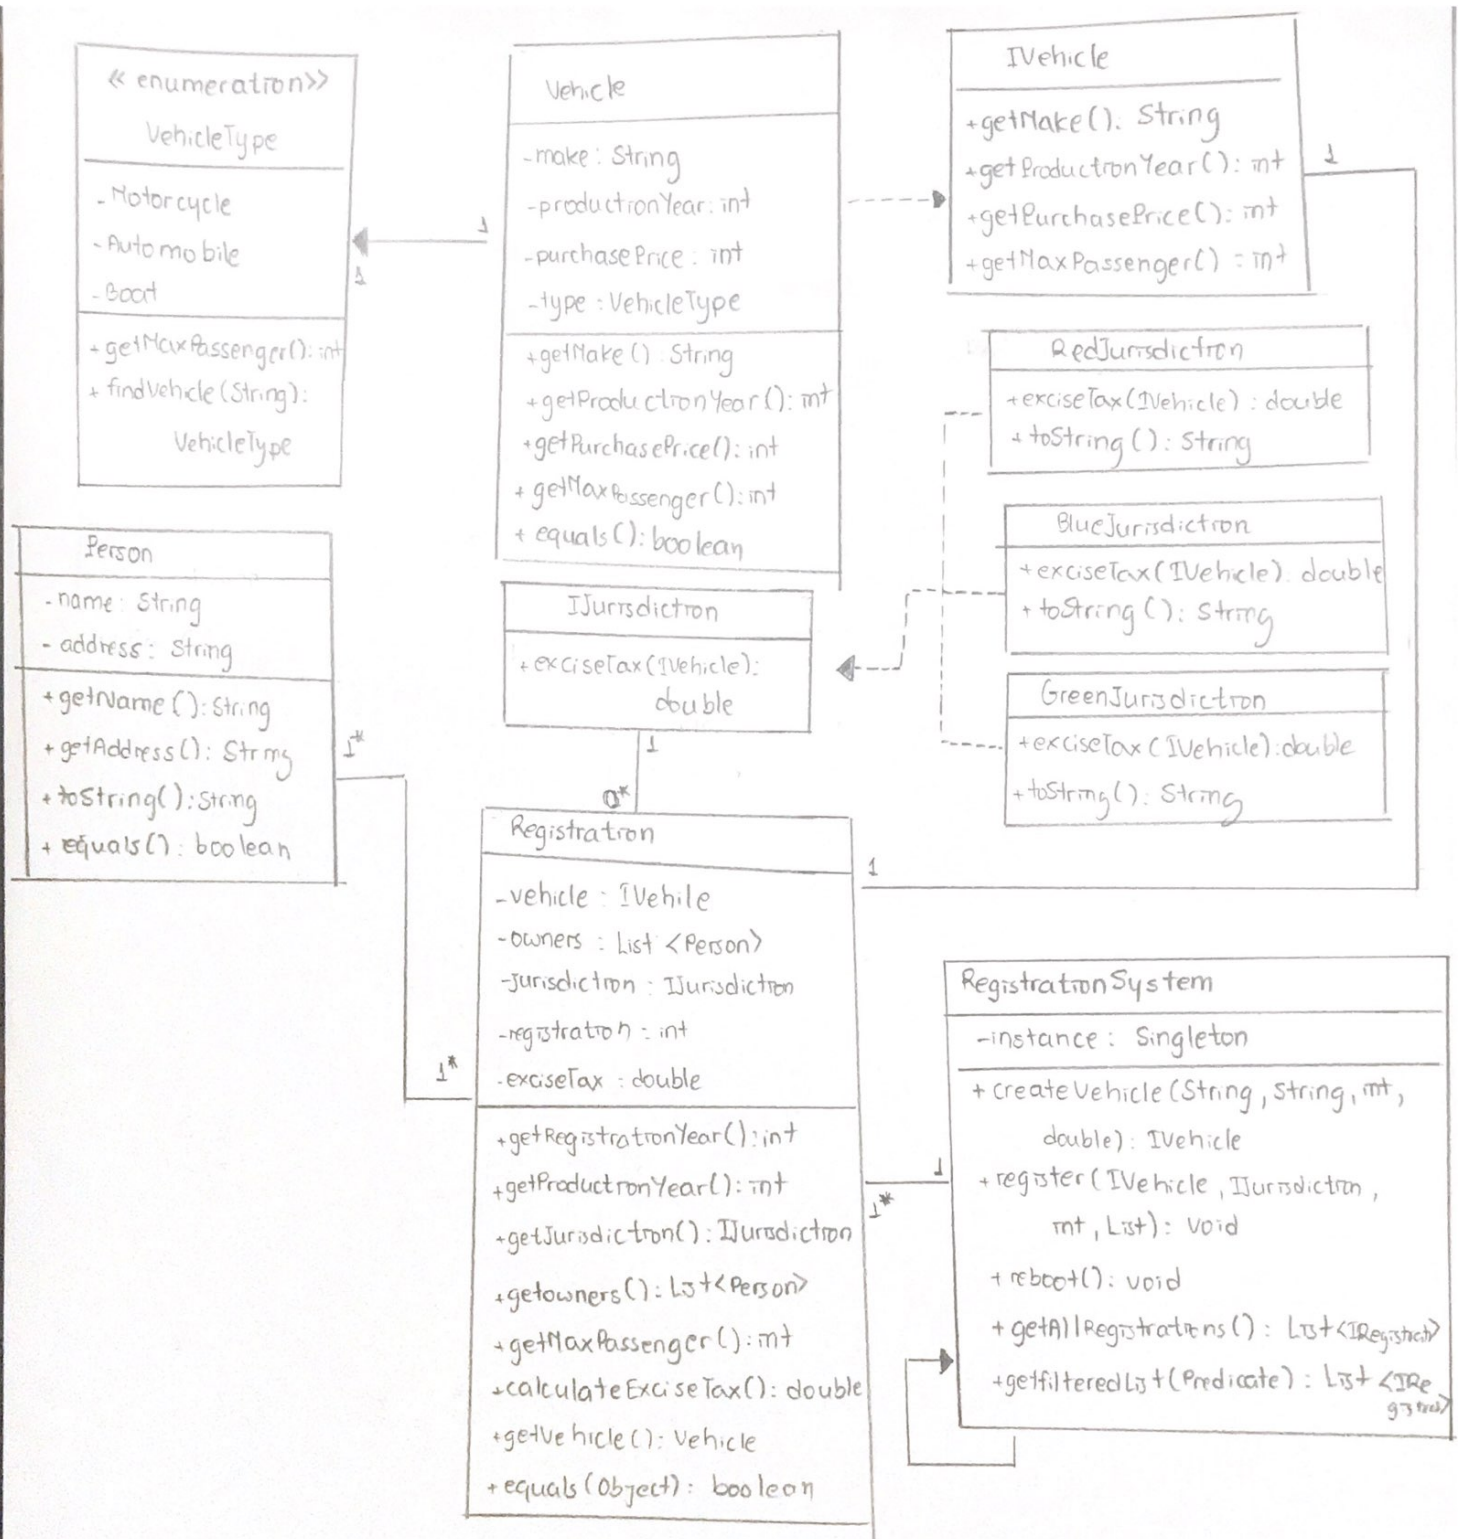 << enumeration>>
VehicleType
-Motorcycle
-Automobile
-Boat
+getMaxPassenger(): int
+ findVehicle(String):
VehicleType
Vehicle
-make: String
-productionYear: int
-purchasePrice: int
-type: VehicleType
+getMake(): String
+getProductionYear(): int
+getPurchasePrice(): int
+ getMaxPassenger(): int
+ equals(): boolean
IVehicle
+getMake(): String
+getProductionYear(): int
+getPurchasePrice(): int
+getMaxPassenger() : int
1
1
1
RedJurisdiction
+exciseTax(IVehicle) : double
+ toString(): String
BlueJurisdiction
+exciseTax(IVehicle): double
+ toString(): String
GreenJurisdiction
+exciseTax(IVehicle):double
+toString(): String
Person
-name: String
- address: String
+getName(): String
+getAddress(): String
+toString(): String
+ equals(): boolean
1*
IJurisdiction
+exciseTax(IVehicle):
double
1
0*
Registration
-vehicle : IVehile
-owners : List <Person>
-jurisdiction : IJurisdiction
-registration : int
-exciseTax : double
+getRegistrationYear(): int
+getProductionYear(): int
+getJurisdiction(): IJurisdiction
+getowners(): List<Person>
+getMaxPassenger(): int
+calculateExciseTax(): double
+getVehicle(): Vehicle
+equals(Object): boolean
1
1*
1*
1
RegistrationSystem
-instance: Singleton
+ createVehicle(String, String, int,
double): IVehicle
+register(IVehicle, IJurisdiction,
int, List): void
+reboot(): void
+getAllRegistrations(): List<IRegistrati>
+getfilteredList(Predicate): List <IRe